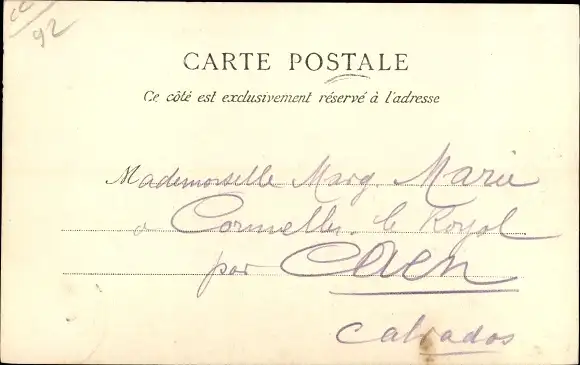 92
CARTE POSTALE
Ce côté est exclusivement réservé à l'adresse
Mademoiselle Marg Marie
à Cormelles le Royal
par Caen
Calvados